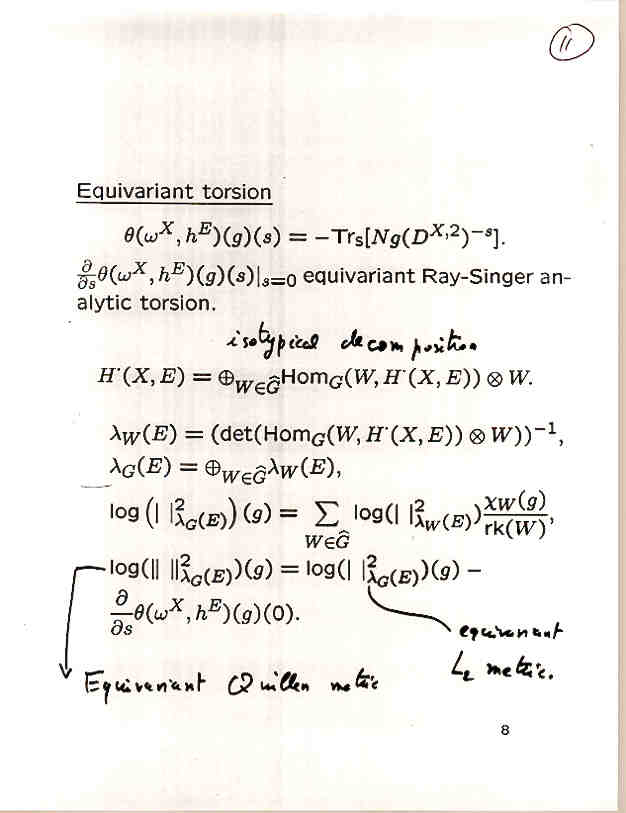 11
Equivariant torsion
θ(ω^X, h^E)(g)(s) = −Tr_s[Ng(D^{X,2})^{−s}].
∂/∂s θ(ω^X, h^E)(g)(s)|_{s=0} equivariant Ray-Singer an-
alytic torsion.
isotypical decomposition
H^·(X, E) = ⊕_{W∈Ĝ} Hom_G(W, H^·(X, E)) ⊗ W.
λ_W(E) = (det(Hom_G(W, H^·(X, E)) ⊗ W))^{−1},
λ_G(E) = ⊕_{W∈Ĝ} λ_W(E),
log (| |²_{λ_G(E)}) (g) = ∑_{W∈Ĝ} log(| |²_{λ_W(E)}) χ_W(g)/rk(W),
log(‖ ‖²_{λ_G(E)})(g) = log(| |²_{λ_G(E)})(g) −
∂/∂s θ(ω^X, h^E)(g)(0).
equivariant
L₂ metric.
Equivariant Quillen metric
8